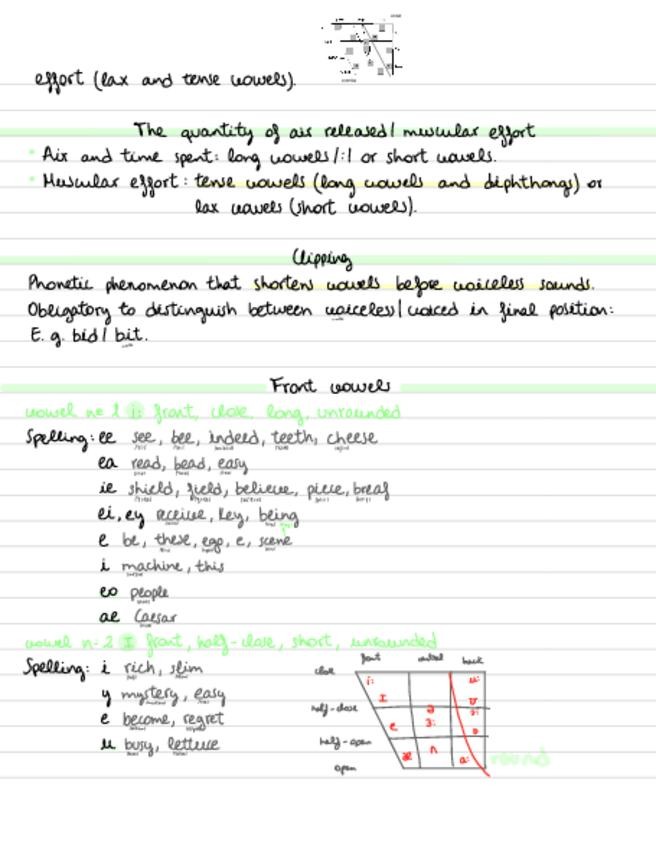 effort (lax and tense vowels).
The quantity of air released / muscular effort
Air and time spent: long vowels /:/ or short vowels.
Muscular effort: tense vowels (long vowels and diphthongs) or
lax vowels (short vowels).
Clipping
Phonetic phenomenon that shortens vowels before voiceless sounds.
Obligatory to distinguish between voiceless / voiced in final position:
E. g. bid / bit.
Front vowels
vowel nº 1 i: front, close, long, unrounded
Spelling: ee see, bee, indeed, teeth, cheese
ea read, bead, easy
ie shield, field, believe, piece,
ei, ey receive, key, being
e be, these, ego, e, scene
i machine, this
eo people
ae Caesar
vowel nº 2 I front, half-close, short, unrounded
Spelling: i rich, slim
y mystery, easy
e become, regret
u busy, lettuce
front central back
close i: u:
I ʊ
half-close ə ɔ:
e ɜ: ɒ
half-open
æ ʌ ɑ:
open
round